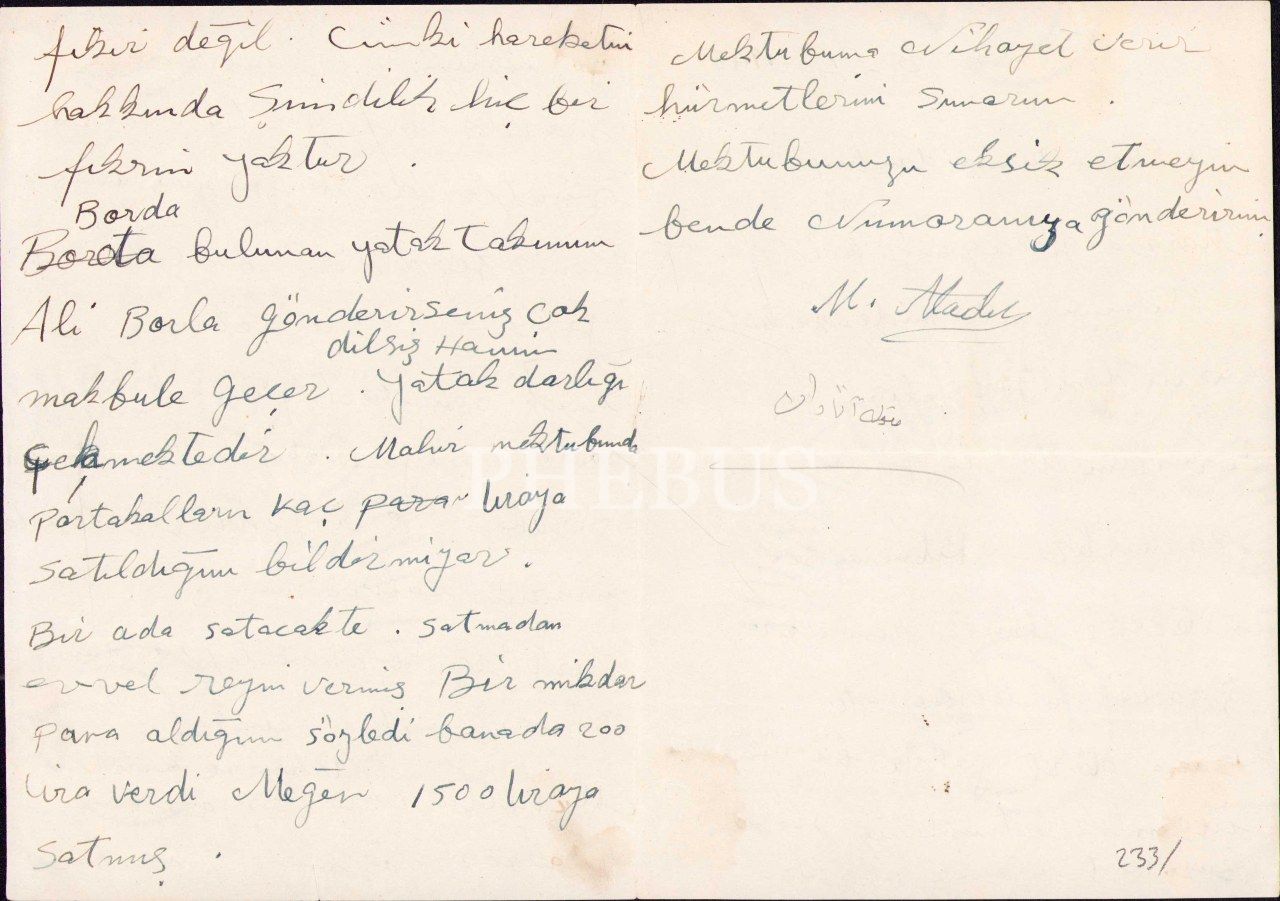 fikir değil. Cünki hareketin
hakkında Şimdilik hiç bir
fikrim yaktur.
Borda
Borota bulunan yatak takımını
Ali Borla gönderirseniz çok
dilsiz Hanım
makbule geçer. yatak darlığı
çekmektedir. Mahir mektubunda
portakalların kaç para liraya
satıldığını bildirmiyor.
Bir ada satacakte. satmadan
evvel reyni vermiş Bir mikdar
para aldığını söyledi banada 200
lira verdi Meğer 1500 liraya
satmış.
Mektubuma Nihayet verir
hürmetlerimi sunarım.
Mektubunuzu eksik etmeyin
bende Numaranıza gönderirim.
M.
PHEBUS
233/